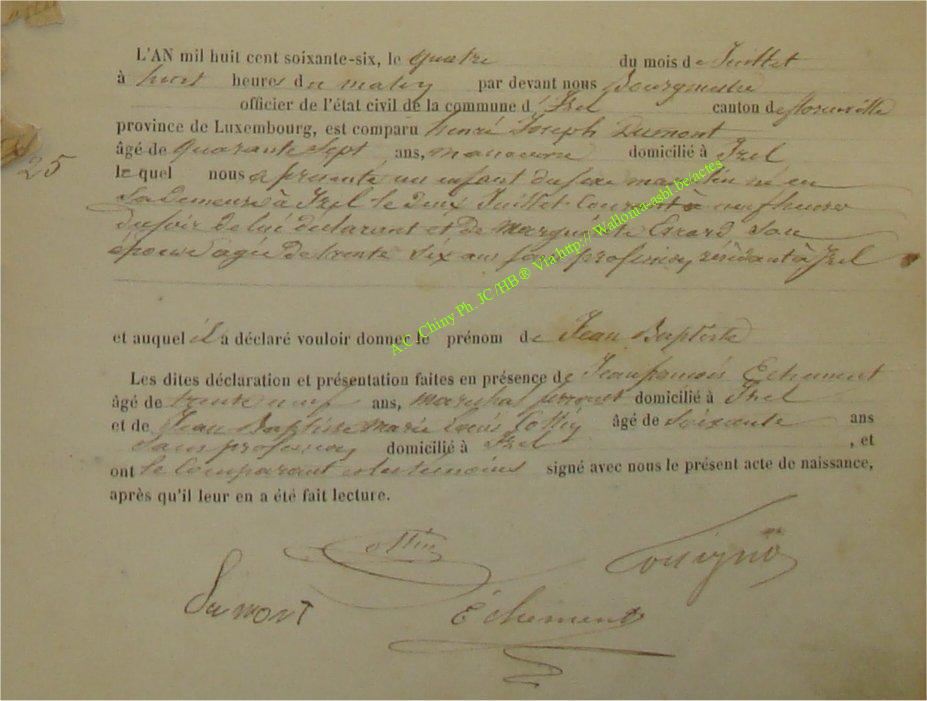 L'AN mil huit cent soixante-six, le quatre du mois de Juillet
à huit heures du matin par devant nous Bourgmestre
officier de l'état civil de la commune d'Izel canton de florenville
province de Luxembourg, est comparu henri Joseph Dumont
âgé de quarante Sept ans, manoeuvre domicilié à Izel
25
le quel nous a présenté un enfant du sexe masculin né en
Sa Demeure à Izel le deux Juillet Courant a neuf heures
du soir de lui déclarant et de Marguerite Gérard Son
épouse agée de trente Six ans sans profession, résidant à Izel
et auquel il a déclaré vouloir donner le prénom de Jean Baptiste
Les dites déclaration et présentation faites en présence de Jean françois Echement
âgé de trente neuf ans, marechal ferrant domicilié à Izel
et de Jean Baptiste Marie Louis Collin âgé de Soixante ans
Sans profession domicilié à Izel , et
ont le Comparant et les témoins signé avec nous le présent acte de naissance,
après qu'il leur en a été fait lecture.
Dumont
Echement
A.C. Chiny Ph. JC/HB® Via http:// Wallonia-asbl.be/actes